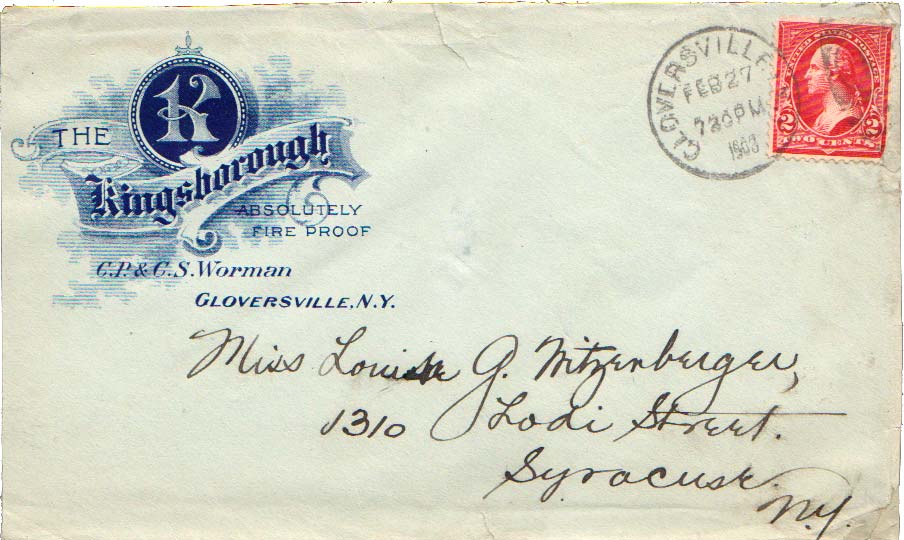 K
THE
Kingsborough
ABSOLUTELY
FIRE PROOF
C.P. & C.S. Worman
GLOVERSVILLE, N.Y.
GLOVERSVILLE
FEB 27
730 PM
1903
UNITED STATES POSTAGE
2 2
TWO CENTS
Miss Louise G. Witzenberger,
1310 Lodi Street.
Syracuse.
N.Y.